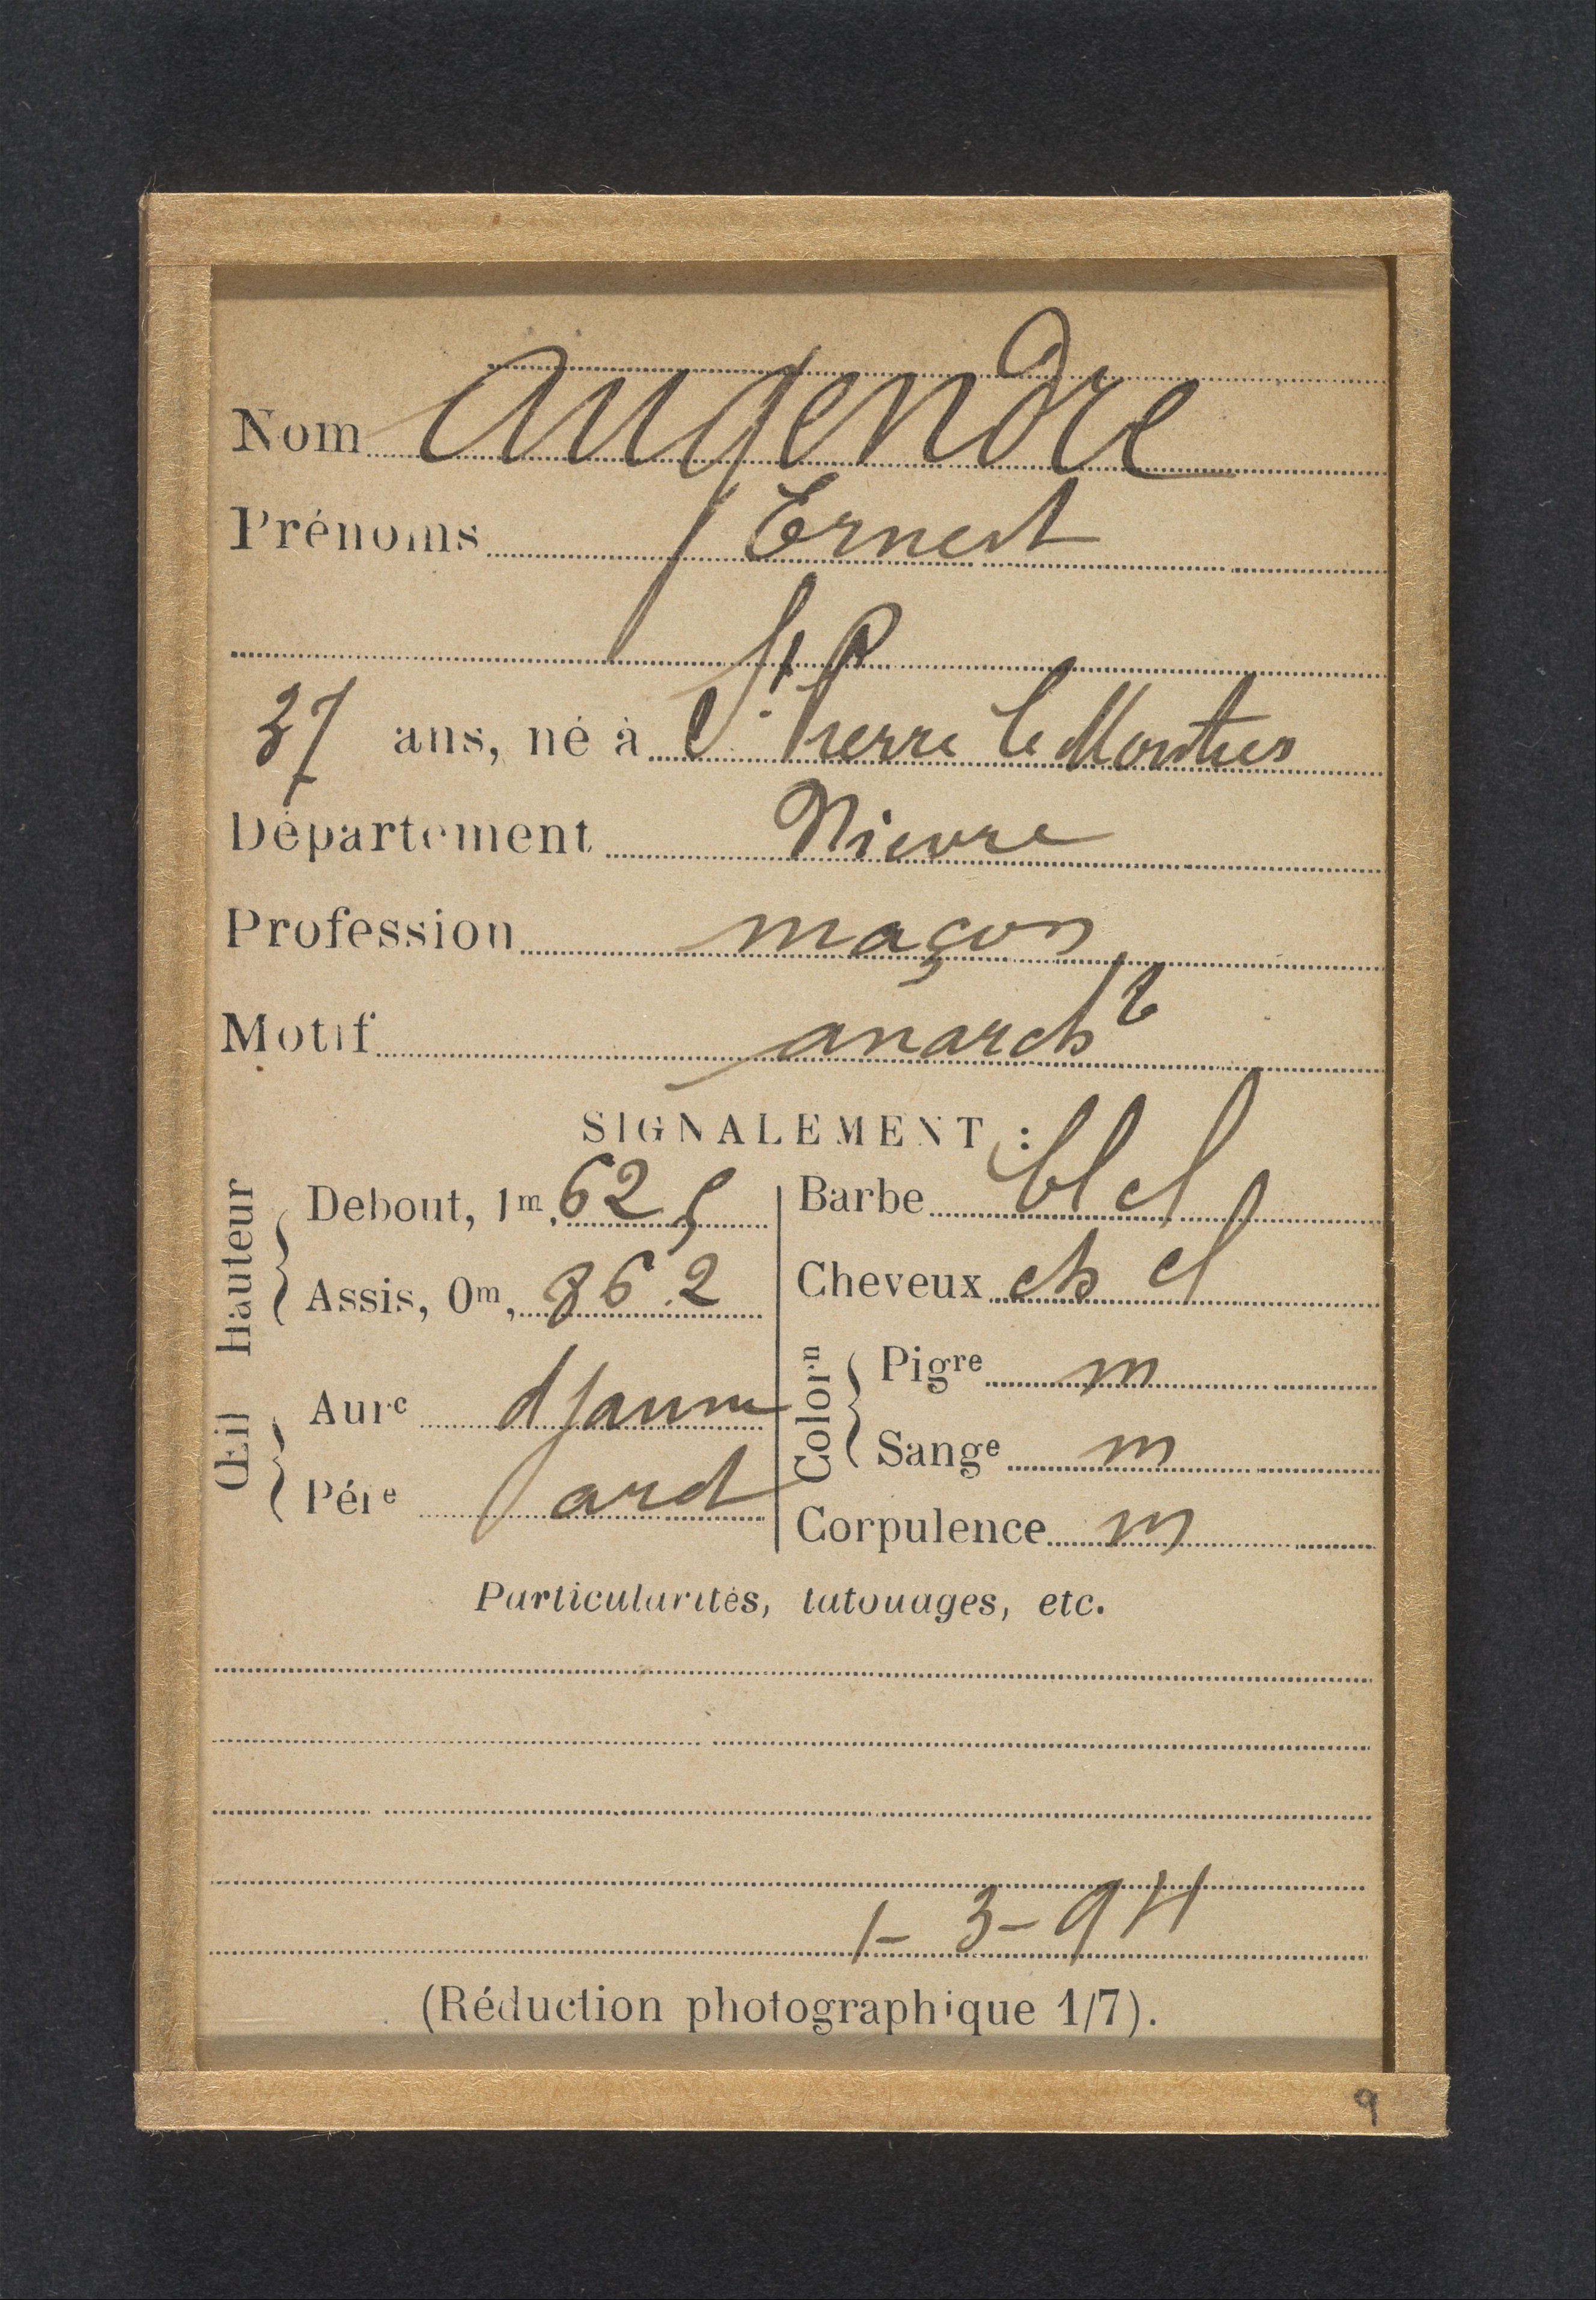 Nom Augendre
Prénoms Ernest
37 ans, né à St. Pierre le Moutiers
Département Nievre
Profession maçon
Motif anarch
SIGNALEMENT :
Hauteur
Debout, 1m, 62,5
Assis, 0m, 86.2
Œil
Aurc d jaune
Pére ard
Barbe bl cl
Cheveux ch cl
Colorn
Pigre m
Sange m
Corpulence m
Particularités, tatouages, etc.
1-3-94
(Réduction photographique 1/7).
9